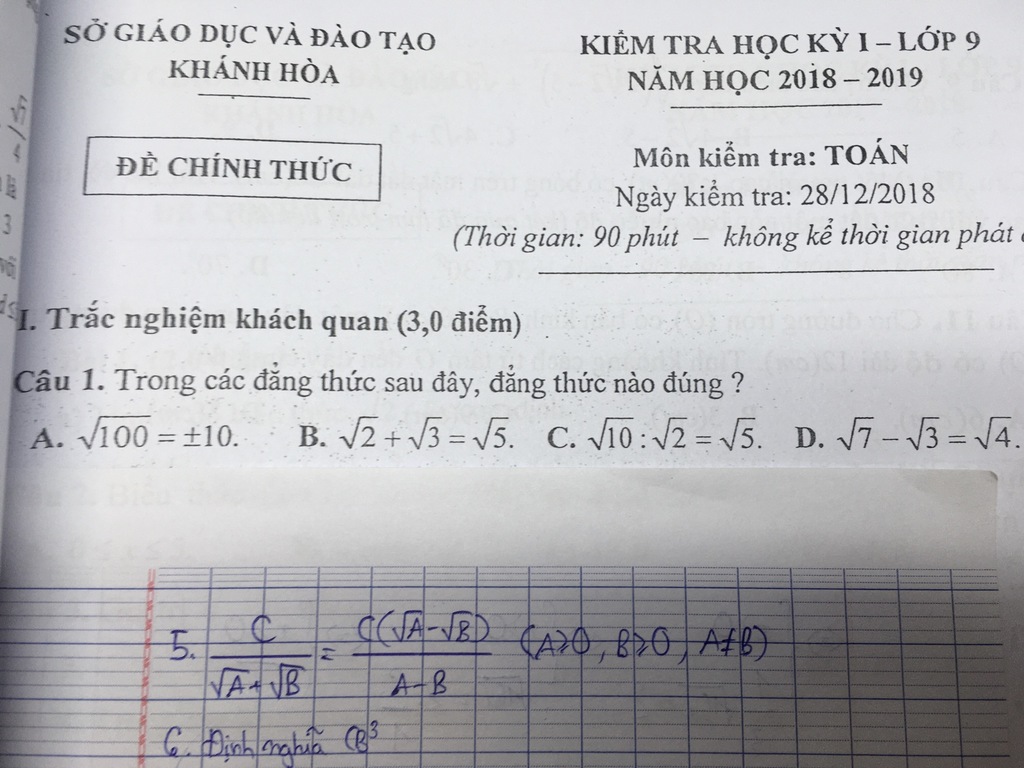 SỞ GIÁO DỤC VÀ ĐÀO TẠO
KHÁNH HÒA
ĐỀ CHÍNH THỨC
KIỂM TRA HỌC KỲ I – LỚP 9
NĂM HỌC 2018 – 2019
Môn kiểm tra: TOÁN
Ngày kiểm tra: 28/12/2018
(Thời gian: 90 phút – không kể thời gian phát
I. Trắc nghiệm khách quan (3,0 điểm)
Câu 1. Trong các đẳng thức sau đây, đẳng thức nào đúng ?
A. √100 = ±10. B. √2 + √3 = √5. C. √10 : √2 = √5. D. √7 − √3 = √4.
5. C/(√A+√B) = C(√A-√B)/(A-B) (A≥0, B≥0, A≠B)
6. Định nghĩa CB³